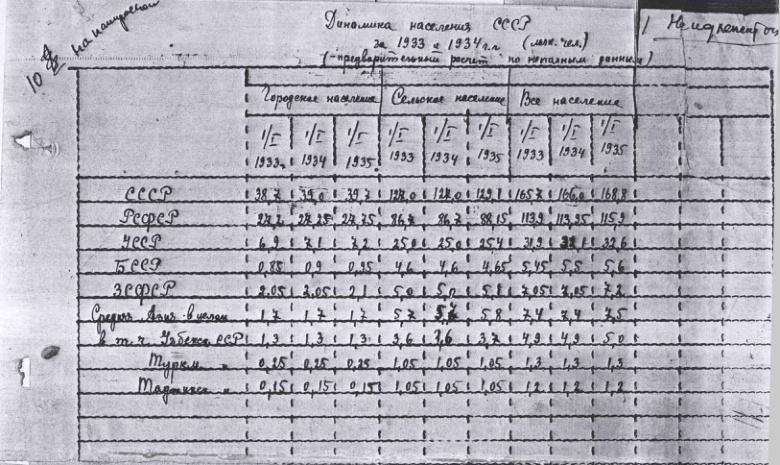 Динамика населения СССР
за 1933 и 1934 г.г. (млн. чел.)
(-предварительный расчет по неполным данным)
Городское население Сельское население Все население
1/I 1933 1/I 1934 1/I 1935 1/I 1933 1/I 1934 1/I 1935 1/I 1933 1/I 1934 1/I 1935
СССР 38,7 39,0 39,7 127,0 127,0 129,1 165,7 166,0 168,8
РСФСР 27,2 27,25 27,75 86,7 86,7 88,15 113,9 113,95 115,9
УССР 6,9 7,1 7,2 25,0 25,0 25,4 31,9 32,1 32,6
БССР 0,85 0,9 0,95 4,6 4,6 4,65 5,45 5,5 5,6
ЗСФСР 2,05 2,05 2,1 5,0 5,0 5,1 7,05 7,05 7,2
Средняя Азия в целом 1,7 1,7 1,7 5,7 5,7 5,8 7,4 7,4 7,5
в т.ч. Узбекс. ССР 1,3 1,3 1,3 3,6 3,6 3,7 4,9 4,9 5,0
Туркм. " 0,25 0,25 0,25 1,05 1,05 1,05 1,3 1,3 1,3
Таджикс " 0,15 0,15 0,15 1,05 1,05 1,05 1,2 1,2 1,2